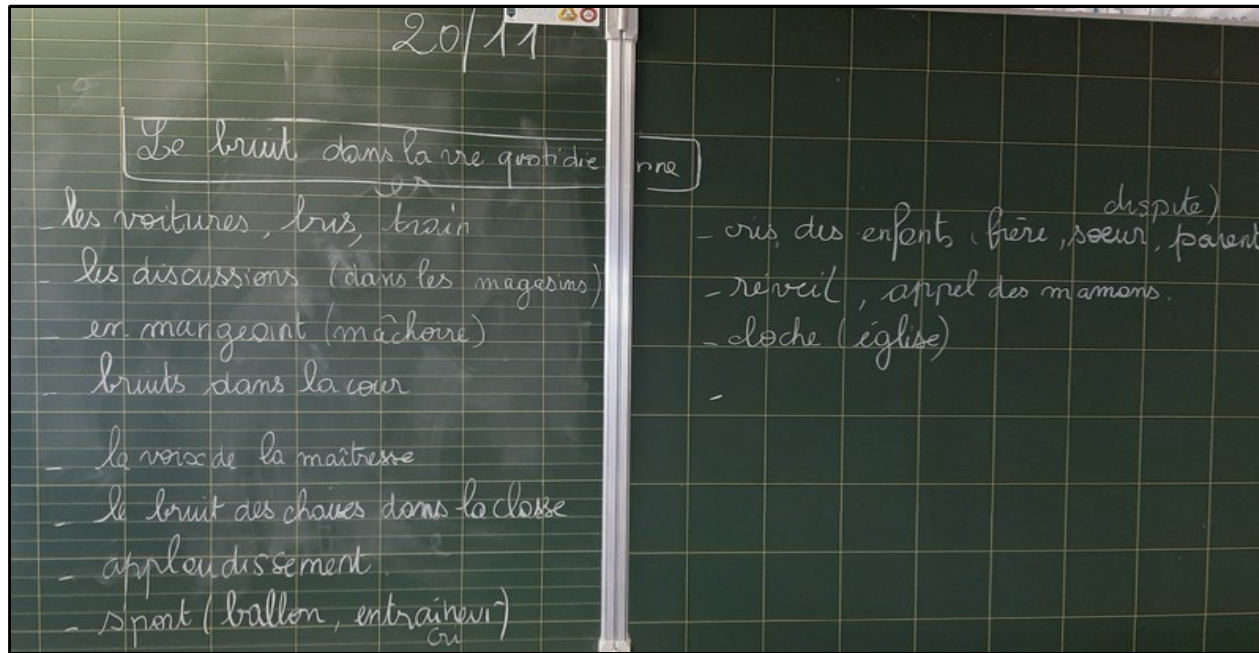 20/11
Le bruit dans la vie quotidienne
- les voitures, bus, train
- les discussions (dans les magasins)
- en mangeant (mâchoire)
- bruits dans la cour
- la voix de la maîtresse
- le bruit des chaises dans la classe
- applaudissement
- sport (ballon, entraineur)
cri
dispute)
- cris des enfants (frère, soeur, parent
- réveil, appel des mamans.
- cloche (église)
-